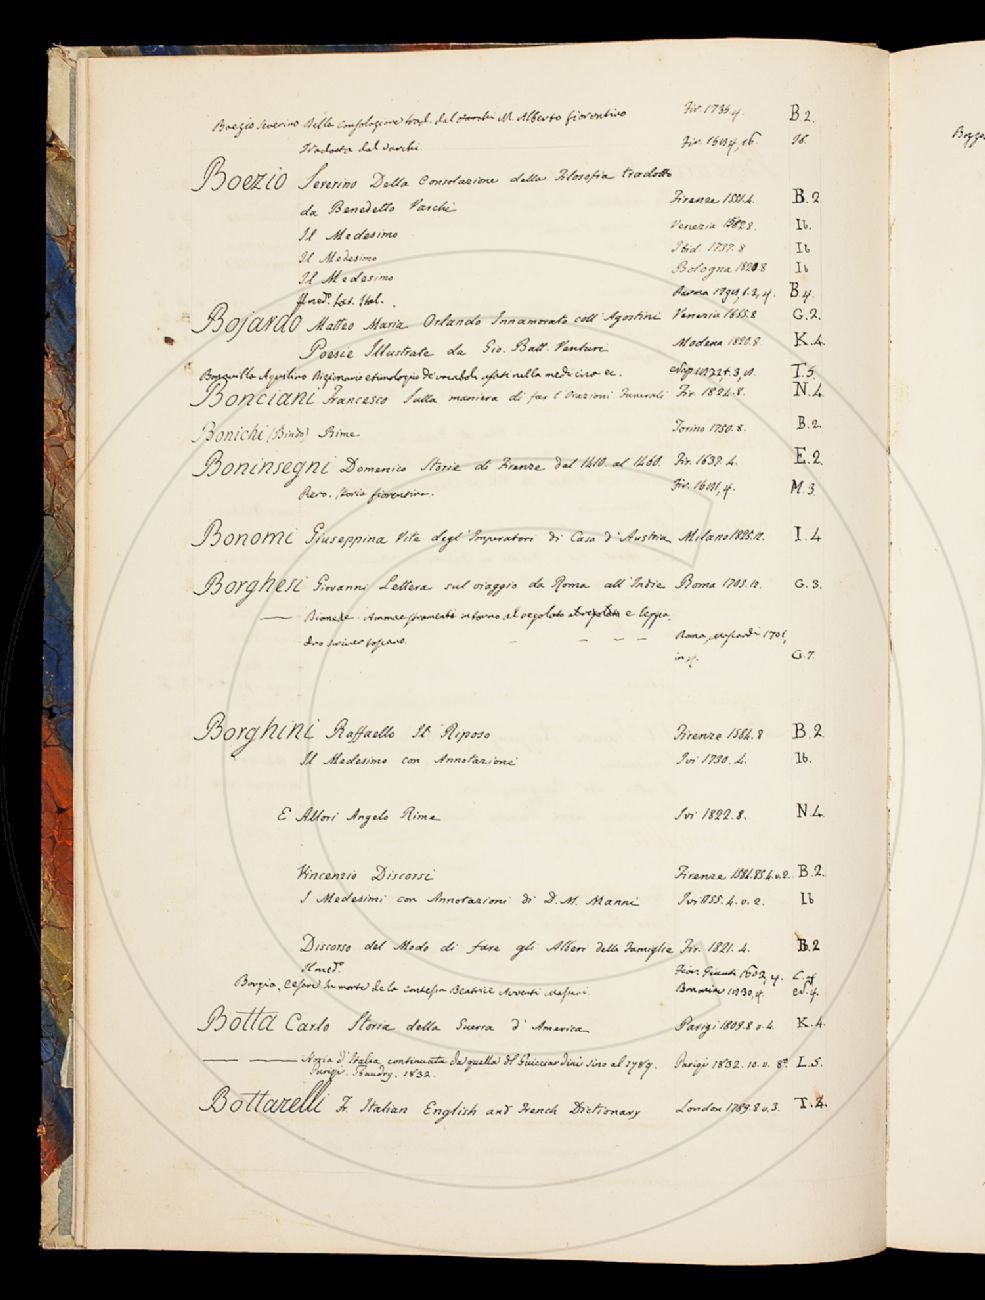 Boezio Severino della consolazione trad. dal M. Alberto fiorentino Fir. 1735 4. B.2.
Tradotta dal Varchi Fir. Ib.
Boezio Severino Della Consolazione della Filosofia tradotto
da Benedetto Varchi Firenze 1551.4. B.2
Il Medesimo Venezia 8. Ib.
Il Medesimo Ibid. 1737.8 Ib
Il Medesimo Bologna 8 Ib
Il med.º Parma B.4.
Bojardo Matteo Maria Orlando Innamorato coll' Agostini Venezia 1655.8 G.2.
Poesie Illustrate da Gio. Batt. Venturi Modena 1820.8 K.4.
Agostino Dizionario etimologico di vocaboli usati nella medicina ec. T.5.
Bonciani Francesco Sulla maniera di far l'Orazioni Funerali Fir. 1824.8. N.4.
Bonichi (Bindo) Rime Torino 1750.8. B.2.
Boninsegni Domenico Storie di Firenze dal 1410. al 1460. Fir. 1637.4. E.2.
Piero. Storia fiorentina. Fir. 4. M.3.
Bonomi Giuseppina Vite degl'Imperatori di Casa d'Austria Milano I.4
Borghesi Giovanni Lettera sul viaggio da Roma all'Indie Roma 1705.12. G.3.
— Diomede. Ammaestramenti intorno al regolato e leggia
dro scriver toscano. — — — — Roma, 1701,
in 4. G.7.
Borghini Raffaello Il Riposo Firenze 1584.8 B.2.
Il Medesimo con Annotazioni Ivi 1730.4. Ib.
E Allori Angelo Rime Ivi 1822.8. N.4.
Vincenzio Discorsi Firenze v.2. B.2.
I Medesimi con Annotazioni di D.M. Manni Ivi 1755.4.v.2. Ib
Discorso del Modo di fare gli Alberi delle Famiglie Fir. 1821.4. B.2
Il med.º Fior. Giunti 1602, 4.
Borgia, Cesare in morte de la contessa Beatrice
Botta Carlo Storia della Guerra d'America Parigi 1809.8 v.4. K.4.
— — Storia d'Italia continuata da quella del Guicciardini sino al 1789. Parigi 1832. 10.v. 8º L.5.
Parigi. Baudry. 1832.
Bottarelli F. Italian English and French Dictionary London 1789.8 v.3. T.4.